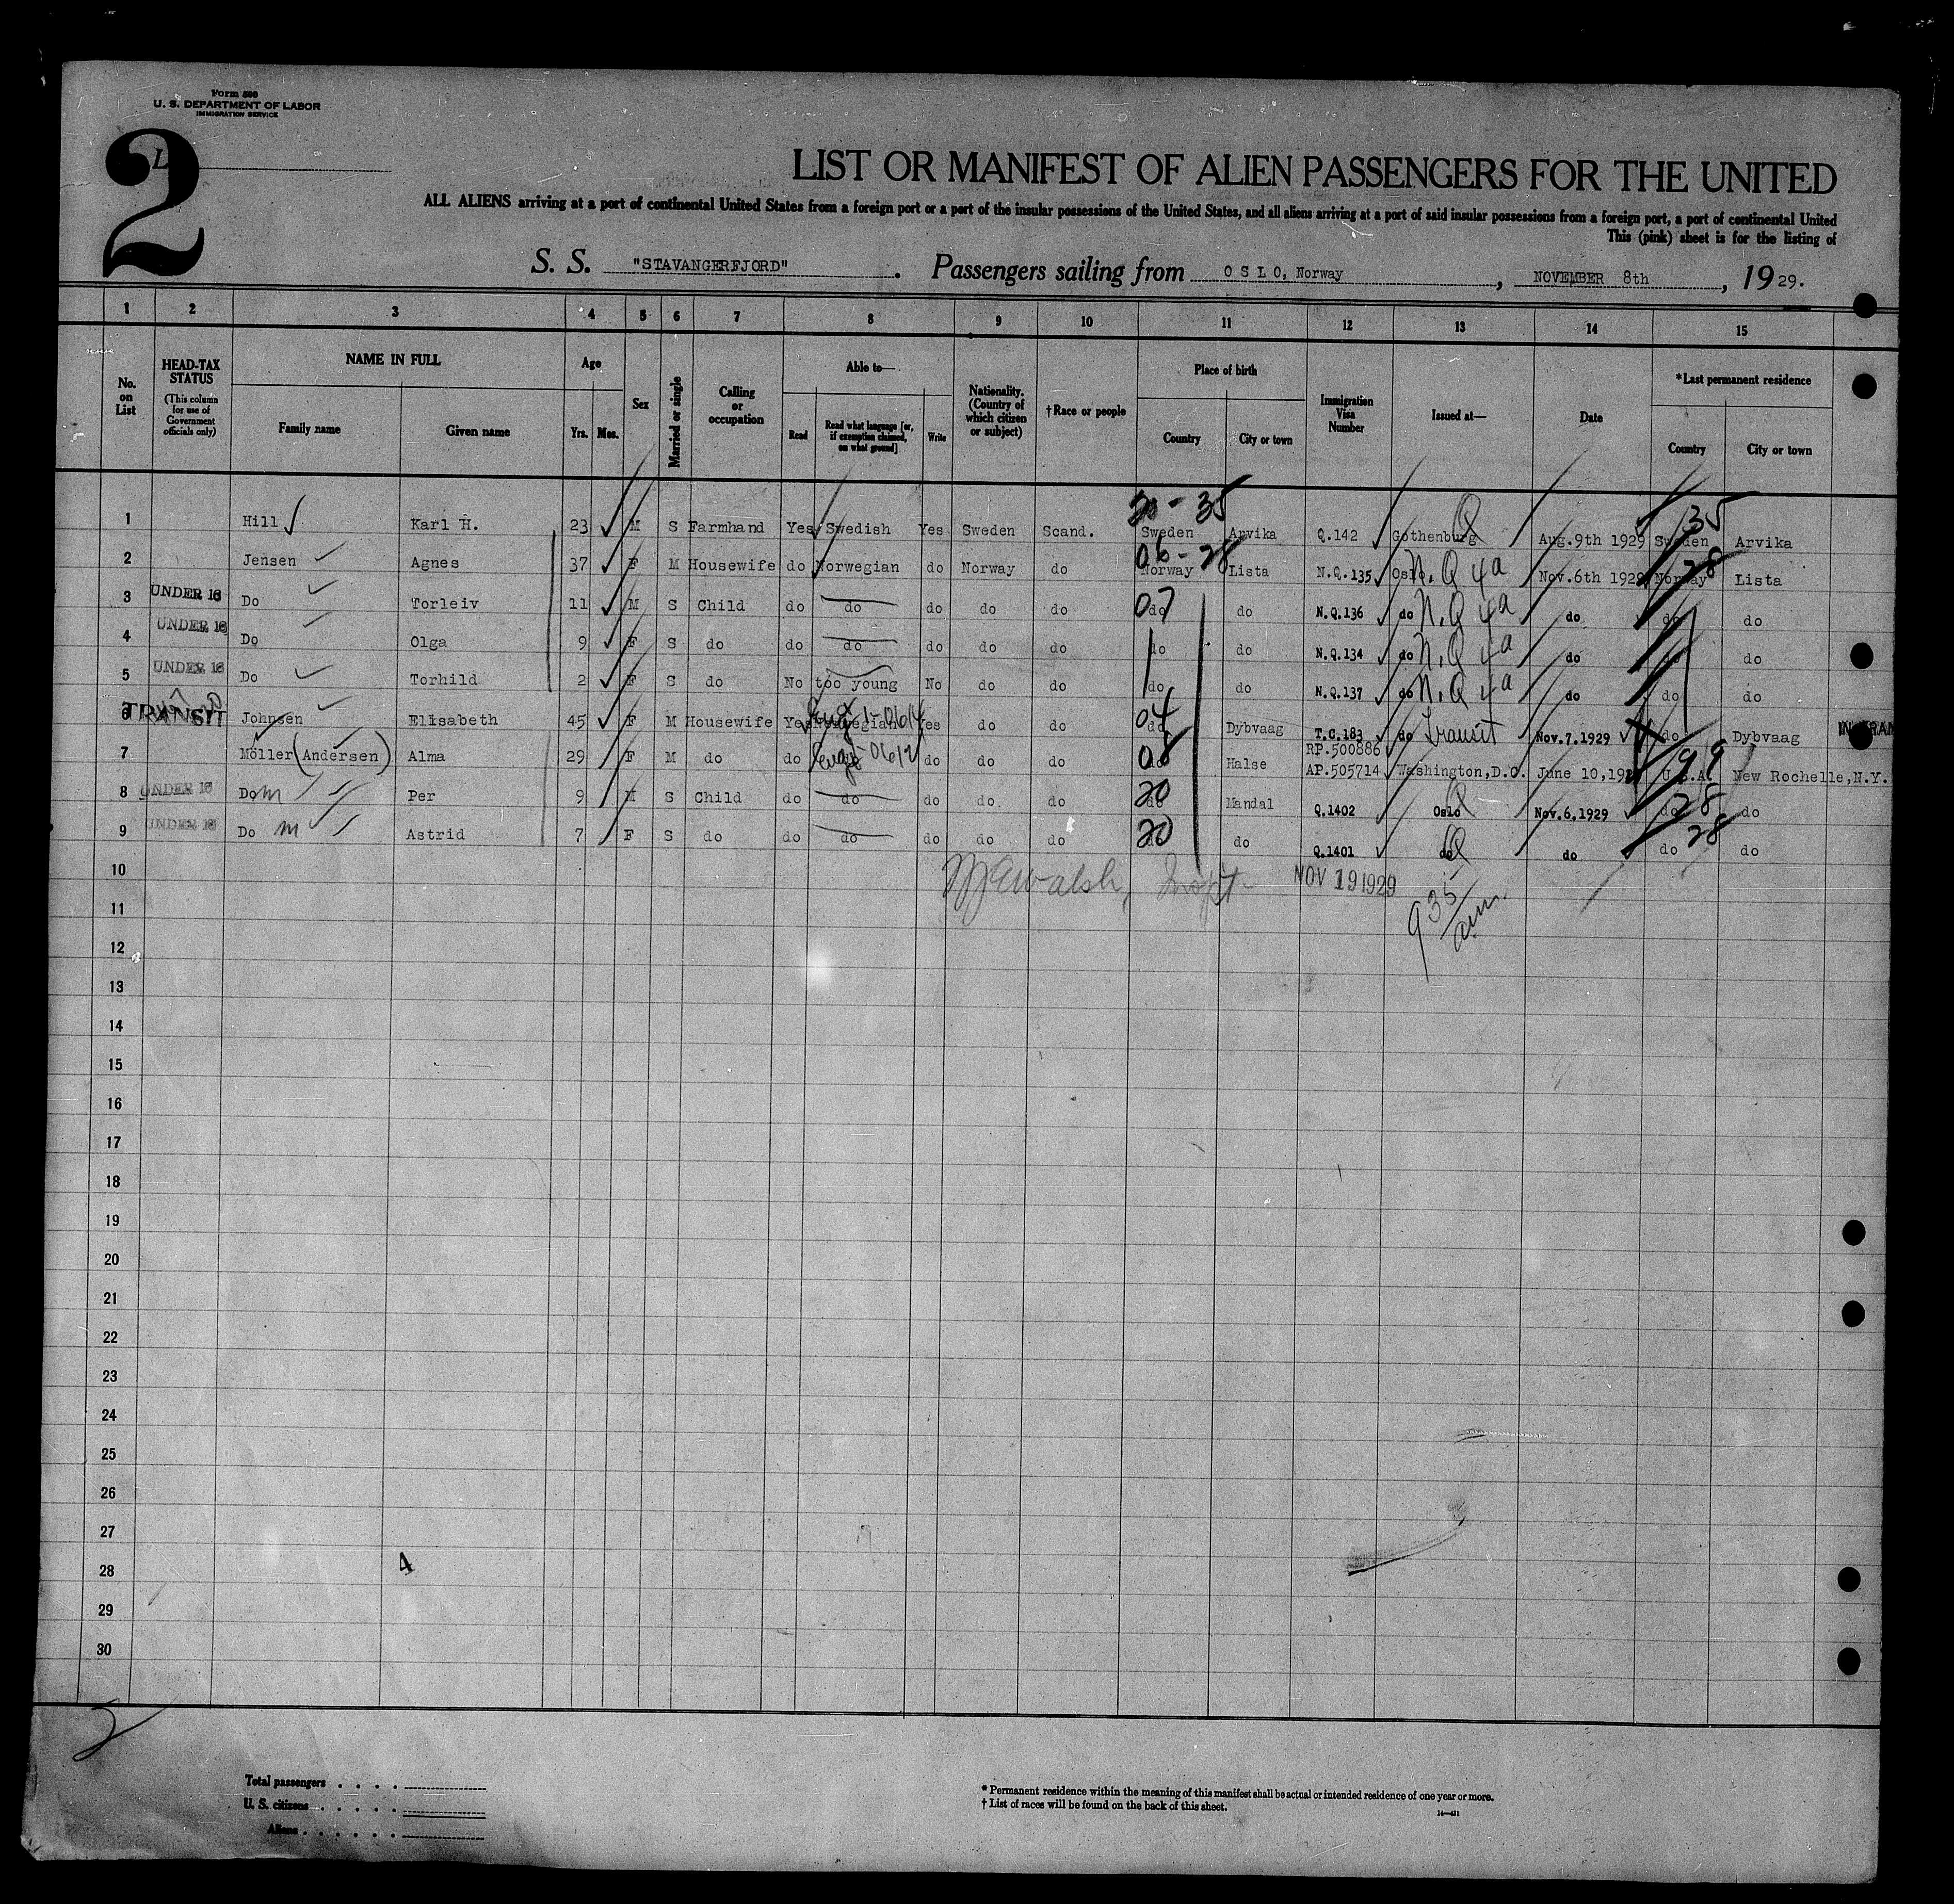 Form 500
U. S. DEPARTMENT OF LABOR
IMMIGRATION SERVICE
2
LIST OR MANIFEST OF ALIEN PASSENGERS FOR THE UNITED
ALL ALIENS arriving at a port of continental United States from a foreign port or a port of the insular possessions of the United States, and all aliens arriving at a port of said insular possessions from a foreign port, a port of continental United
This (pink) sheet is for the listing of
S. S. "STAVANGERFJORD". Passengers sailing from O S L O, Norway, NOVEMBER 8th, 19 29.
1 2 3 4 5 6 7 8 9 10 11 12 13 14 15
No. on List HEAD-TAX STATUS (This column for use of Government officials only) NAME IN FULL Family name Given name Age Yrs. Mos. Sex Married or single Calling or occupation Able to— Read Read what language [or, if exemption claimed, on what ground] Write Nationality. (Country of which citizen or subject) †Race or people Place of birth Country City or town Immigration Visa Number Issued at— Date *Last permanent residence Country City or town
1 Hill Karl H. 23 M S Farmhand Yes Swedish Yes Sweden Scand. 20-35 Sweden Arvika Q.142 Gothenburg Q Aug.9th 1929 35 Sweden Arvika
2 Jensen Agnes 37 F M Housewife do Norwegian do Norway do 06-28 Norway Lista N.Q.135 Oslo N.Q 4a Nov.6th 1929 28 Norway Lista
3 UNDER 16 Do Torleiv 11 M S Child do do do do do 07 do do N.Q.136 do N.Q 4a do do do
4 UNDER 16 Do Olga 9 F S do do do do do do do do N.Q.134 do N.Q 4a do do do
5 UNDER 16 Do Torhild 2 F S do No too young No do do do do N.Q.137 do N.Q 4a do do do
6 TRANSIT Johnsen Elisabeth 45 F M Housewife Yes Norwegian Yes do do 04 do Dybvaag T.C.183 do Transit Nov.7.1929 do Dybvaag
7 Möller (Andersen) Alma 29 F M do do do do do 08 do Halse RP.500886 AP.505714 Washington,D.C. June 10, 99 U.S.A. New Rochelle,N.Y.
8 UNDER 16 Do m Per 9 M S Child do do do do do 20 do Mandal Q.1402 Oslo Q Nov.6.1929 do 28 do
9 UNDER 16 Do m Astrid 7 F S do do do do do do 20 do do Q.1401 do Q do do 28 do
10 Walsh, Inspt NOV 19 1929
11 935 am.
12
13
14
15
16
17
18
19
20
21
22
23
24
25
26
27
28 4
29
30
2
Total passengers . . . .
U. S. citizens . . . . .
Aliens . . . . . .
* Permanent residence within the meaning of this manifest shall be actual or intended residence of one year or more.
† List of races will be found on the back of this sheet.